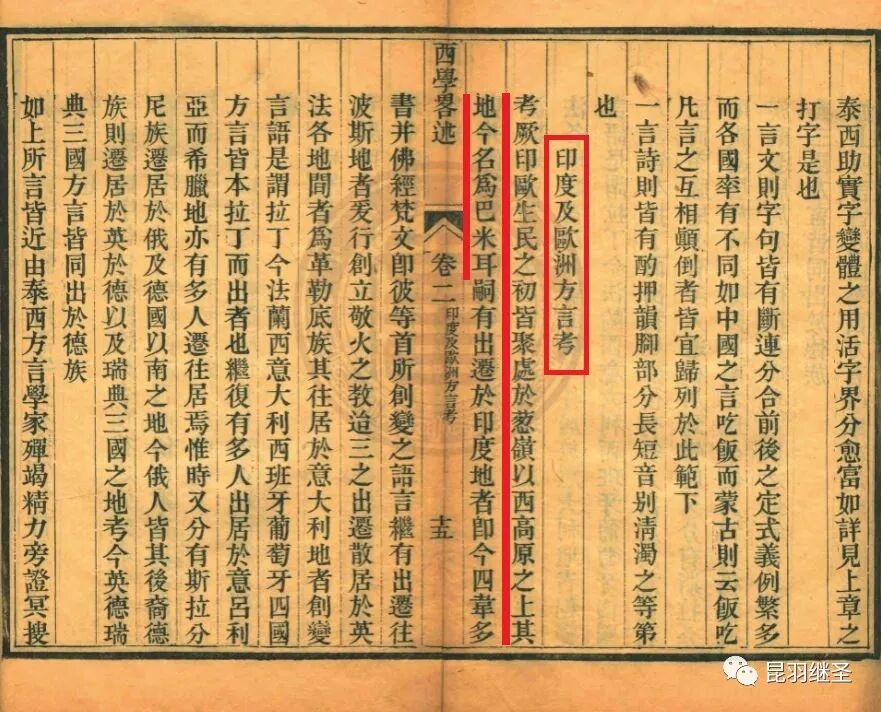 泰西助實字變體之用活字界分愈富如詳見上章之
打字是也
一言文則字句皆有斷連分合前後之定式義例繁多
而各國率有不同如中國之言吃飯而蒙古則云飯吃
凡言之互相顚倒者皆宜歸列於此範下
一言詩則皆有酌押韻腳部分長短音別淸濁之等第
也
印度及歐洲方言考
考厥印歐生民之初皆聚處於葱嶺以西高原之上其
地今名爲巴米耳嗣有出遷於印度地者卽今四韋多
西學畧述
卷二
印度及歐洲方言考
十五
書并佛經梵文卽彼等首所創變之語言繼有出遷往
波斯地者爰行創立敬火之教迨三之出遷散居於英
法各地間者爲革勒底族其往居於意大利地者創變
言語是謂拉丁今法蘭西意大利西班牙葡萄牙四國
方言皆本拉丁而出者也繼復有多人出居於意呂利
亞而希臘地亦有多人遷往居焉惟時又分有斯拉分
尼族遷居於俄及德國以南之地今俄人皆其後裔德
族則遷居於英於德以及瑞典三國之地考今英德瑞
典三國方言皆同出於德族
如上所言皆近由泰西方言學家殫竭精力旁證冥搜
昆羽继圣